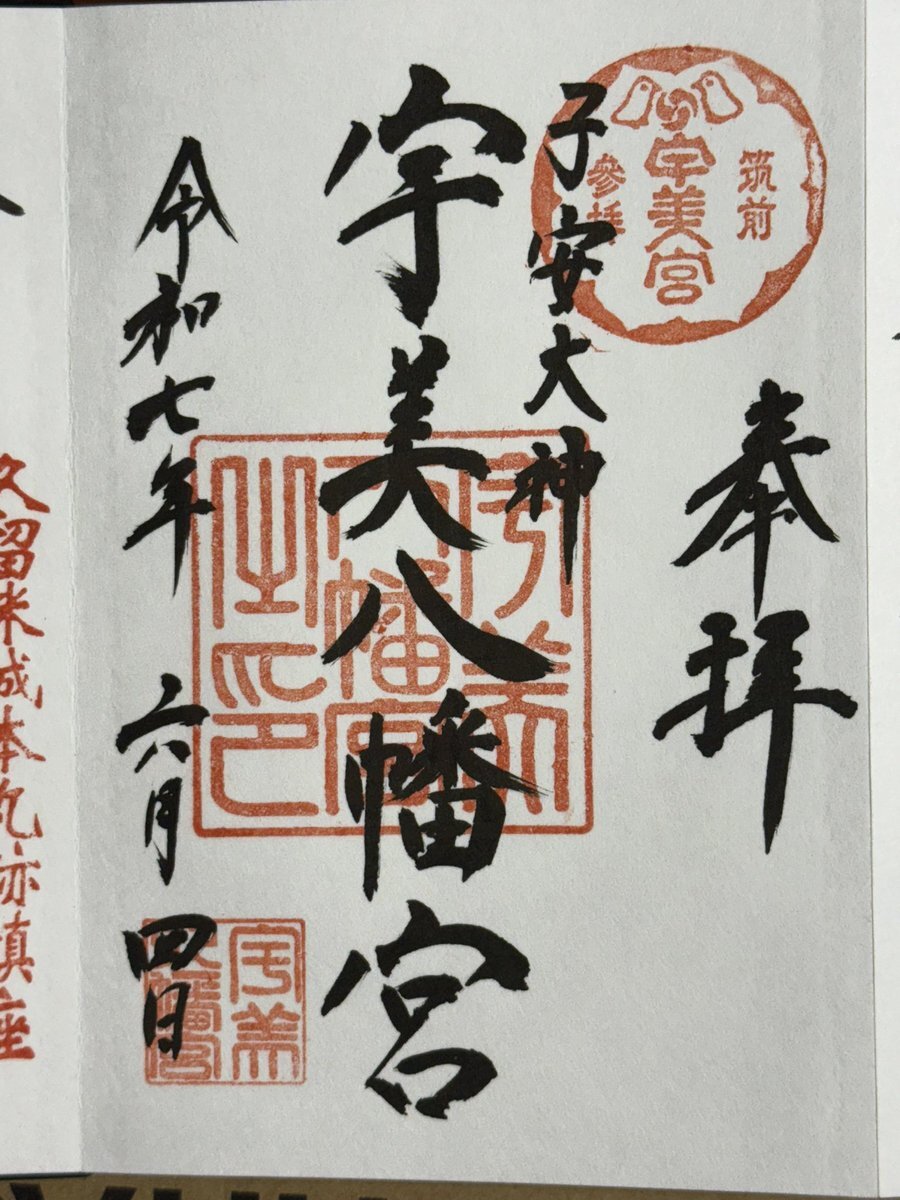 奉拝
筑前
宇美宮
參拝
子安大神
宇美八幡宮
宇美
八幡宮
之印
令和七年 六月 四日
宇美
八幡宮
久留米城本丸跡鎮座